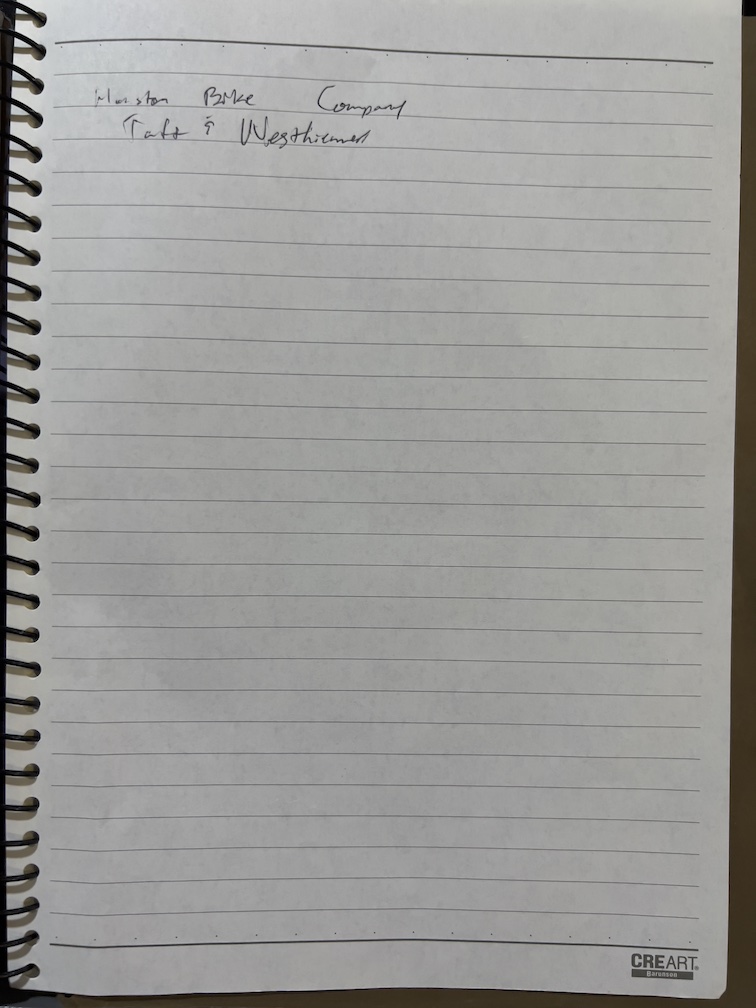 Houston Bike Company
Taft & Westheimer
CREART®
Barunson